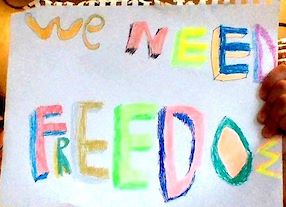 We NEED
FREEDOM